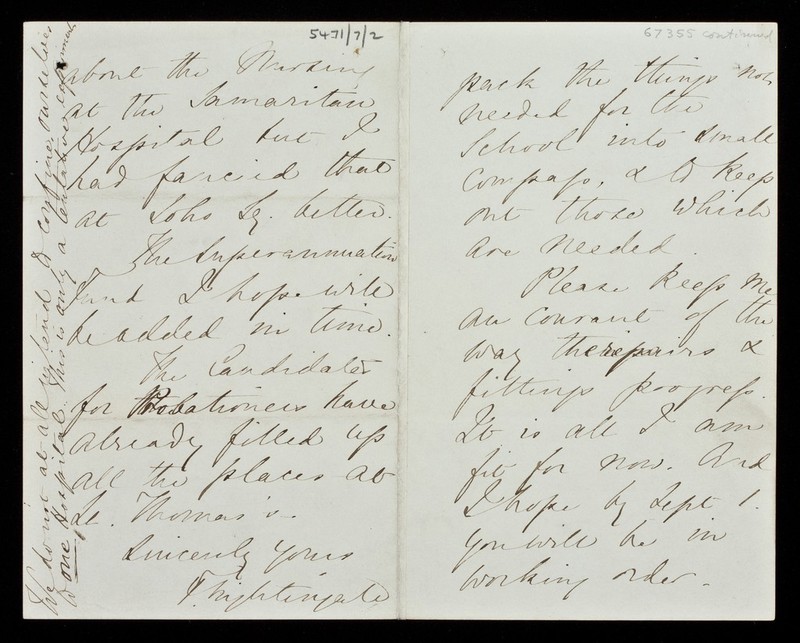 5471/7/2
about the Nursing
at the Samaritan
Hospital but I
had fancied that
at Soho Sq. better.
The Superannuation
Fund I hope will
be added in time.
The Candidates
for Probationers have
already filled up
all the places at
St. Thomas's.
Sincerely yours
F. Nightingale
We do not at all intend to confine ourselves
to one Hospital. This is only a tentative experiment.
67355 continued
pack the things not
needed for the
School into small
compass, & to keep
out those which
are needed.
Please keep me
au courant of the
way the repairs &
fittings progress.
It is all I am
fit for now. And
I hope by Sept 1.
you will be in
working order.